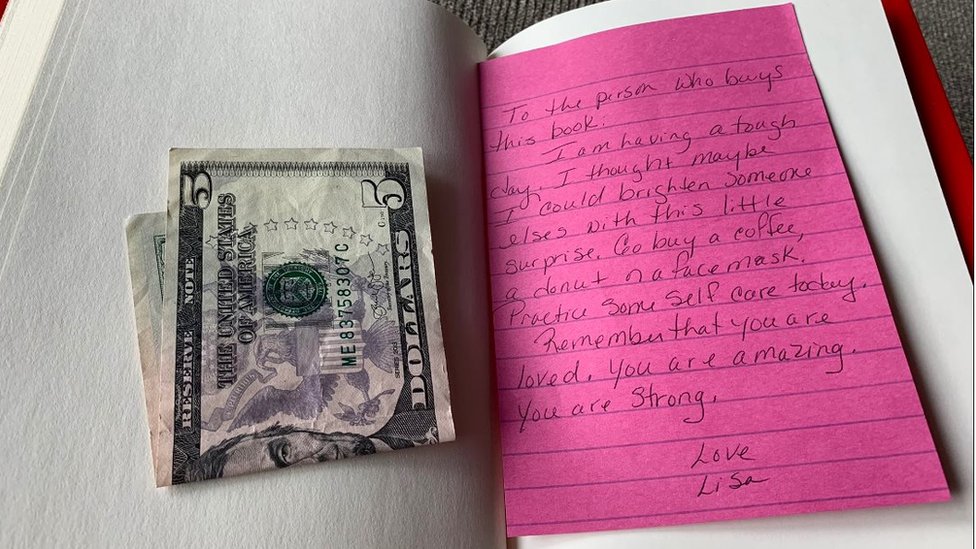 5
5
RESERVE NOTE
THE UNITED STATES
OF AMERICA
ME83758307C
DOLLARS
To the person who buys
this book:
I am having a tough
day. I thought maybe
I could brighten someone
elses with this little
surprise. Go buy a coffee,
a donut or a face mask.
Practice some self care today.
Remember that you are
loved. You are amazing.
You are Strong.
Love
Lisa